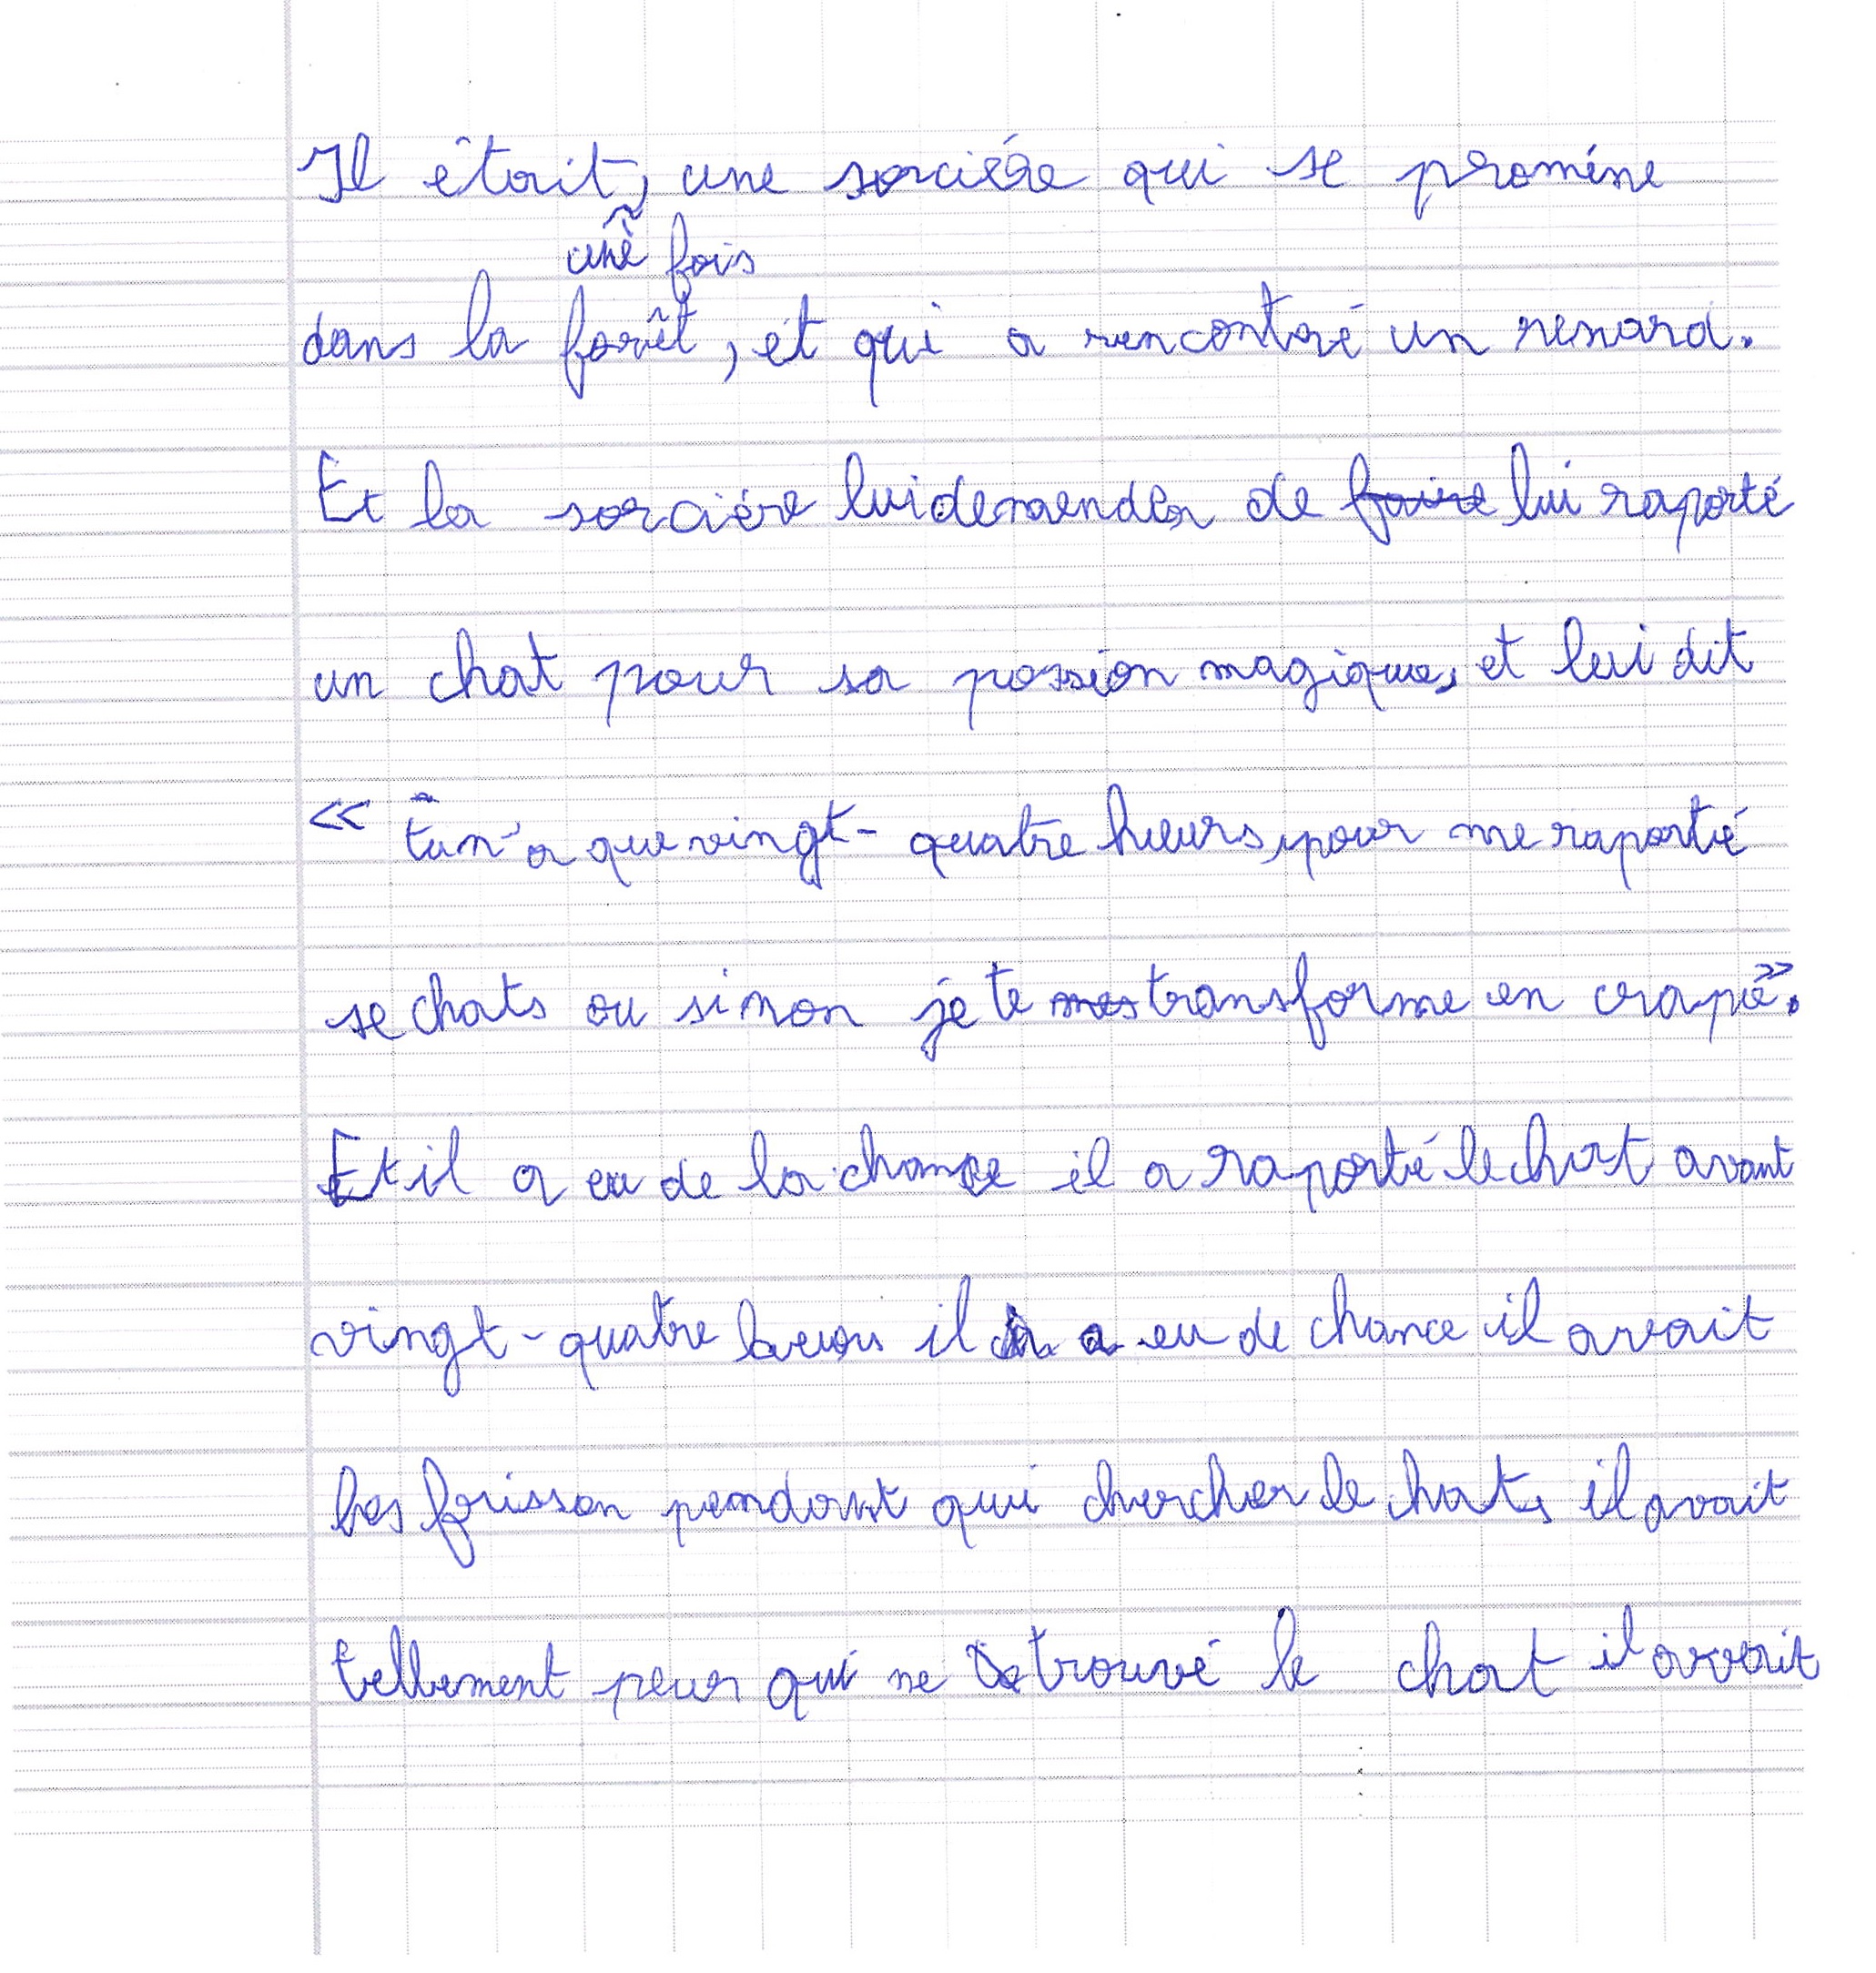 Il était, une sorciére qui se proméne
une fois
dans la forêt, et qui a rencontré un renard.
Et la sorciére lui demenda de faire lui raporté
un chat pour sa possion magique, et lui dit
« tu n'a que vingt-quatre heurs, pour me raporté
se chats ou sinon je te mes transforme en crapé ».
Et il a eu de la chance il a raporté le chat avant
vingt-quatre heurs il a eu de chance il avait
les frisson pendant qui chercher le chat, il avait
tellement peur qui ne trouvé le chat il avait